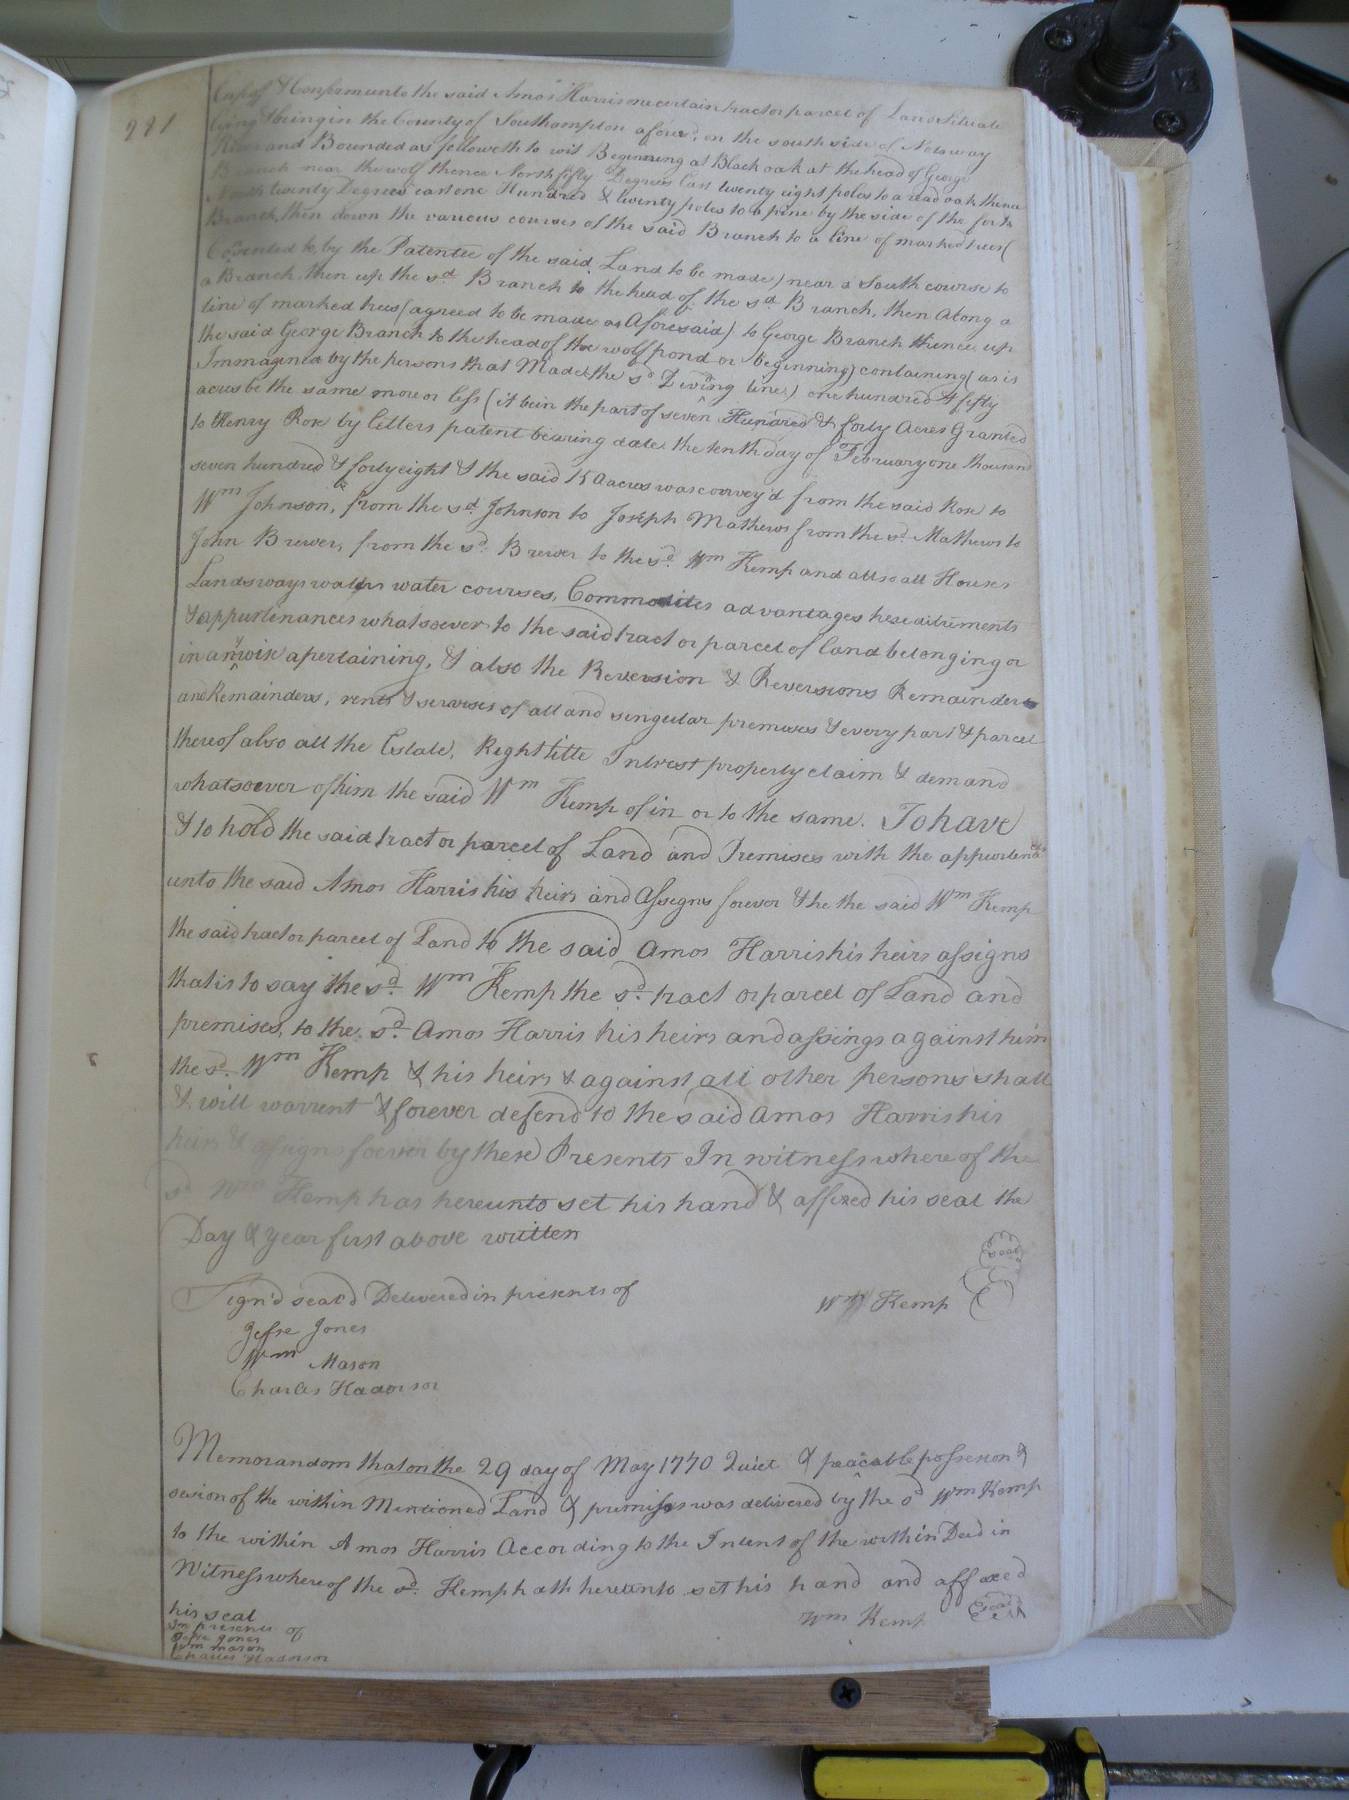 291
& Confirm unto the said Amos Harris one certain tract or parcel of Land Situate
lying & being in the County of Southampton afores.d on the south side of Notaway
River and Bounded as followeth to wit Beginning at Black oak at the head of George
Branch near the wolf thence North fifty Degrees East twenty eight poles to a read oak thence
North twenty Degrees east one Hundred & twenty poles to a pine by the side of the
Branch, then down the various courses of the said Branch to a line of marked trees (
to, by the Patentee of the said Land to be made) near a South course to
a Branch, then up the s.d Branch to the head of the s.d Branch, then along a
line of marked trees (agreed to be made as Aforesaid) to George Branch thence up
the said George Branch to the head of the wolf pond or beginning) containing (as is
Immagined by the persons that Made the s.d Deviding line) one hundred & fifty
acres be the same more or less (it bein the part of seven Hundred & forty Acres Granted
to Henry Rose by letters patent bearing date the tenth day of February one thousand
seven hundred & forty eight & the said 150 acres was convey'd from the said Rose to
Wm Johnson, from the s.d Johnson to Joseph Mathews from the s.d Mathews to
John Brewer, from the s.d Brewer to the s.d Wm Kemp and allso all Houses
Lands ways water courses, Commodities advantages heseditements
& appurtinances whatsoever to the said tract or parcel of land belonging or
in anywise apertaining, & also the Reversion & Reversions Remainder
and Remainders, rents & servises of all and singular premises & every part & parcel
thereof also all the Estate, Right title Intrest property claim & demand
whatsoever of him the said Wm Kemp of in or to the same. To have
& to hold the said tract or parcel of Land and Premises with the appurtenc.s
unto the said Amos Harris his heirs and Assigns forever & he the said Wm Kemp
the said tract or parcel of Land to the said Amos Harris his heirs assigns
that is to say the s.d Wm Kemp the s.d tract or parcel of Land and
premises, to the s.d Amos Harris his heirs and assings against him
the s.d Wm Kemp & his heirs & against all other persons shall
& will warrent & forever defend to the said Amos Harris his
heirs & assigns forever by these Presents In witness where of the
s.d Wm Kemp has hereunto set his hand & affixed his seal the
Day & year first above written
Sign'd seal'd Delivered in presents of
Wm Kemp seal
Jesse Jones
Wm Mason
Charles
Memorandom that on the 29 day of May 1770 Quiet & peacable possession &
sesion of the within Mentioned Land & premises was delivered by the s.d Wm Kemp
to the within Amos Harris According to the Intent of the within Deed in
Witness where of the s.d Kemp hath hereunto set his hand and affixed
his seal
Wm Kemp seal
In presents of
Jesse Jones
Wm Mason
Charles